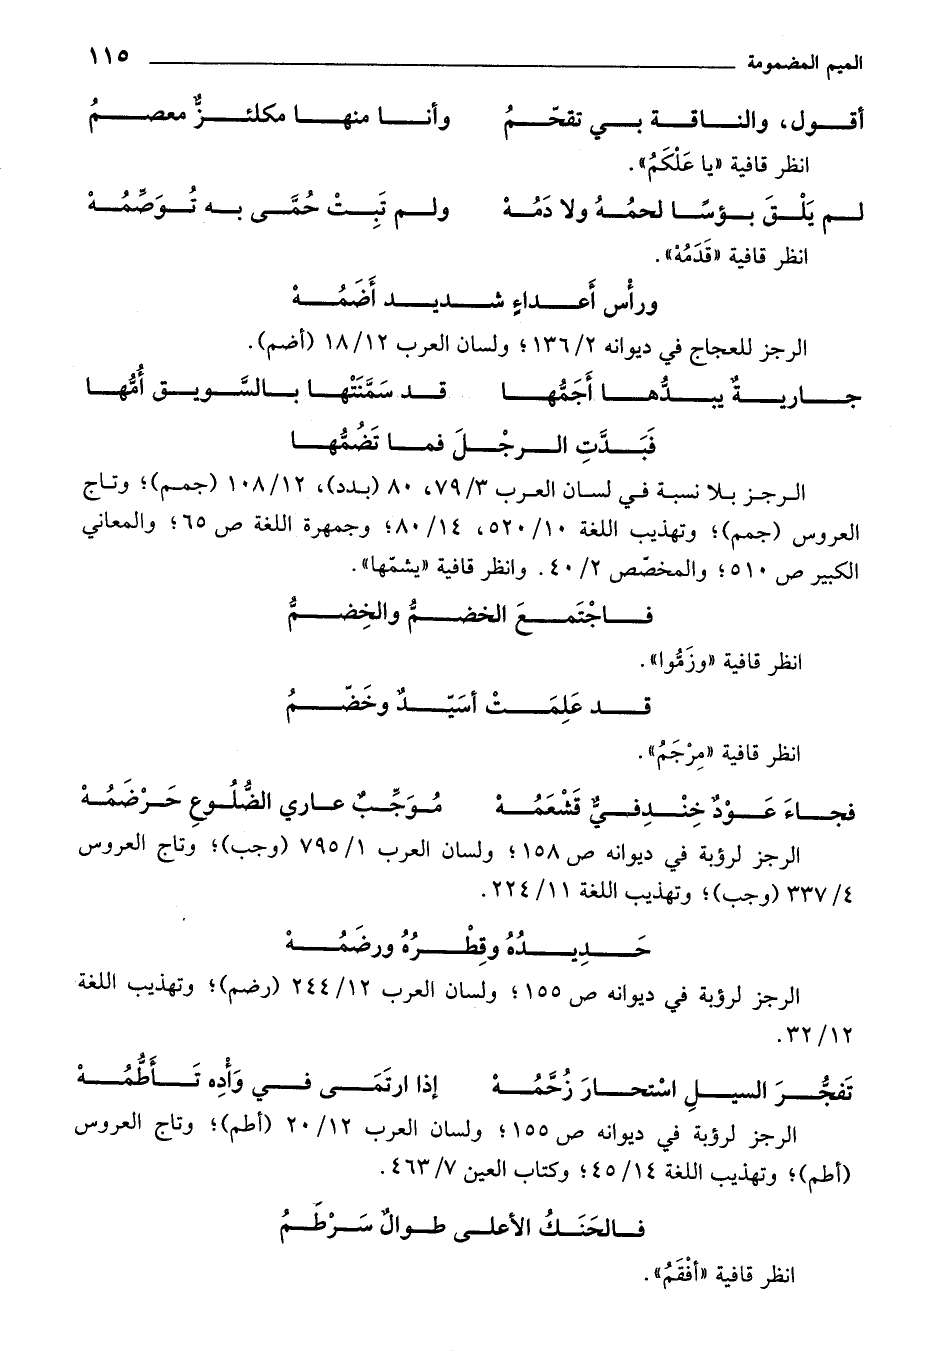 الميم المضمومة ١١٥
أقول، والناقة بي تقحّمُ وأنا منها مكلئزٌّ معصمُ
انظر قافية «يا عَلْكَمُ».
لم يَلْقَ بؤسًا لحمُهُ ولا دَمُهْ ولم تَبِتْ حُمَّى به تُوَصِّمُهْ
انظر قافية «قَدَمُهْ».
ورأْس أَعداءٍ شديد أَضَمُهْ
الرجز للعجاج في ديوانه ١٣٦/٢؛ ولسان العرب ١٨/١٢ (أضم).
جاريةٌ يبدُّها أَجَمُّها قد سَمَّنَتْها بالسَّويق أُمُّها
فَبَدَّتِ الرجْلَ فما تَضُمُّها
الرجز بلا نسبة في لسان العرب ٧٩/٣، ٨٠ (بدد)، ١٠٨/١٢ (جمم)؛ وتاج
العروس (جمم)؛ وتهذيب اللغة ٥٢٠/١٠، ٨٠/١٤؛ وجمهرة اللغة ص ٦٥؛ والمعاني
الكبير ص ٥١٠؛ والمخصّص ٤٠/٢. وانظر قافية «يشمّها».
فاجْتَمعَ الخضمُّ والخِضمُّ
انظر قافية «وزَمُّوا».
قد عَلِمَتْ أسَيّدٌ وخَضّمُ
انظر قافية «مِرْجَمُ».
فجاءَ عَوْدٌ خِنْدِفيٌّ قَشْعَمُهْ مُوَجِّبٌ عاري الضُّلُوعِ حَرْضَمُهْ
الرجز لرؤبة في ديوانه ص ١٥٨؛ ولسان العرب ٧٩٥/١ (وجب)؛ وتاج العروس
٣٣٧/٤ (وجب)؛ وتهذيب اللغة ٢٢٤/١١.
حَديدُهُ وقِطْرُهُ ورضَمُهْ
الرجز لرؤبة في ديوانه ص ١٥٥؛ ولسان العرب ٢٤٤/١٢ (رضم)؛ وتهذيب اللغة
٣٢/١٢.
تَفجُّرَ السيلِ اسْتحارَ زُخَّمُهْ إذا ارتَمَى في وَأْده تَأَطُّمُهْ
الرجز لرؤبة في ديوانه ص ١٥٥؛ ولسان العرب ٢٠/١٢ (أطم)؛ وتاج العروس
(أطم)؛ وتهذيب اللغة ٤٥/١٤؛ وكتاب العين ٤٦٣/٧.
فالحَنَكُ الأعلى طوالٌ سَرْطَمُ
انظر قافية «أفْقَمُ».